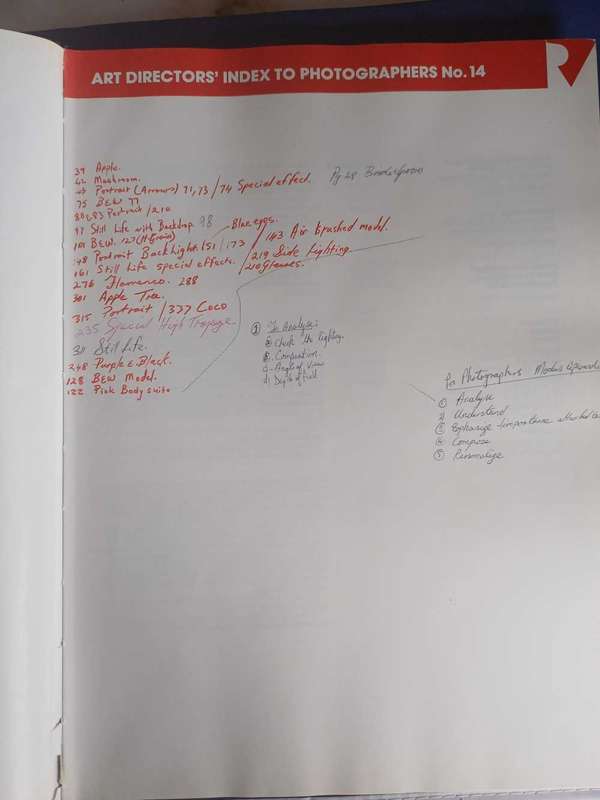 ART DIRECTORS' INDEX TO PHOTOGRAPHERS No. 14
39 Apple.
62 Mushroom.
Portrait (Armours) 71, 73 / 74 Special effect. Pg 28
75 B&W 77
83 Portrait / 210
97 Still Life with Backdrop 98
101 B&W. 127
Blue eyes.
148 Portrait Backlight 151 / 173
143 Air brushed model.
161 Still Life Special effects.
219 Side Lighting.
210 Glasses.
276 Flamenco. 288
301 Apple Tree.
315 Portrait / 377 Coco
235 Special High
311 Still Life.
248 Purple & Black.
128 B&W Model.
122 Pink Body suite
① To Analyse:
Check the lighting.
Composition
Angle of View
Depth of Field
for Photographers Modus
① Analyse
② Understand
③
④ Compose
⑤